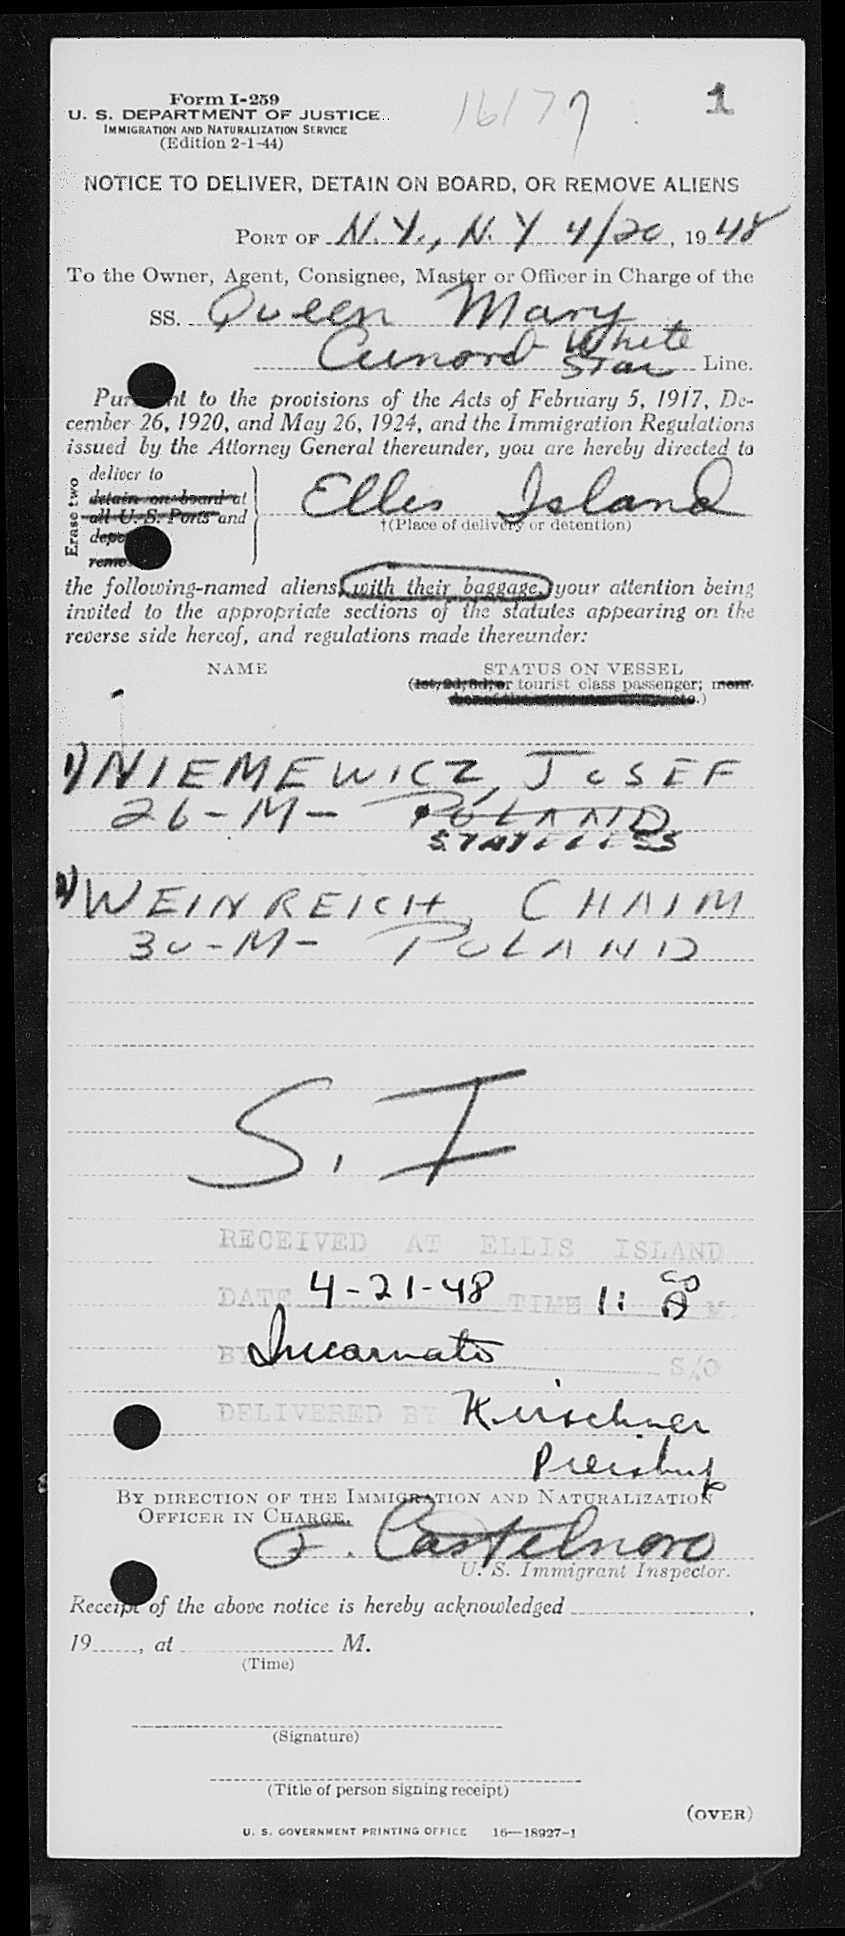 Form I-259
16177
1
U. S. DEPARTMENT OF JUSTICE
IMMIGRATION AND NATURALIZATION SERVICE
(Edition 2-1-44)
NOTICE TO DELIVER, DETAIN ON BOARD, OR REMOVE ALIENS
PORT OF N.Y., N.Y 4/20, 1948
To the Owner, Agent, Consignee, Master or Officer in Charge of the
SS. Queen Mary
Cunard White
Star Line.
Pursuant to the provisions of the Acts of February 5, 1917, De-
cember 26, 1920, and May 26, 1924, and the Immigration Regulations
issued by the Attorney General thereunder, you are hereby directed to
Erase two
deliver to
detain on board at
all U.S. Ports and
Ellis Island
†(Place of delivery or detention)
the following-named aliens, with their baggage, your attention being
invited to the appropriate sections of the statutes appearing on the
reverse side hereof, and regulations made thereunder:
NAME STATUS ON VESSEL
(1st, 2d, 3d, or tourist class passenger; mem-
1) NIEMEWICZ, JOSEF
26-M- POLAND
STATELESS
2) WEINREICH, CHAIM
30-M- POLAND
S. I
RECEIVED AT ELLIS ISLAND
DATE 4-21-48 TIME 11:00 A M.
BY Incarnato S/O
DELIVERED BY Kirschner
BY DIRECTION OF THE IMMIGRATION AND NATURALIZATION
OFFICER IN CHARGE.
F. Castelnovo
U. S. Immigrant Inspector.
Receipt of the above notice is hereby acknowledged ,
19 , at M.
(Time)
(Signature)
(Title of person signing receipt)
(OVER)
U. S. GOVERNMENT PRINTING OFFICE 16—18927-1